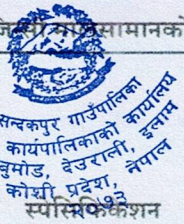 जिन्सी मालसामानको
सन्दकपुर गाउँपालिका
कार्यपालिकाको कार्यालय
बुमोड, देउराली, इलाम
कोशी प्रदेश, नेपाल
२०७३
स्पेसिफिकेशन